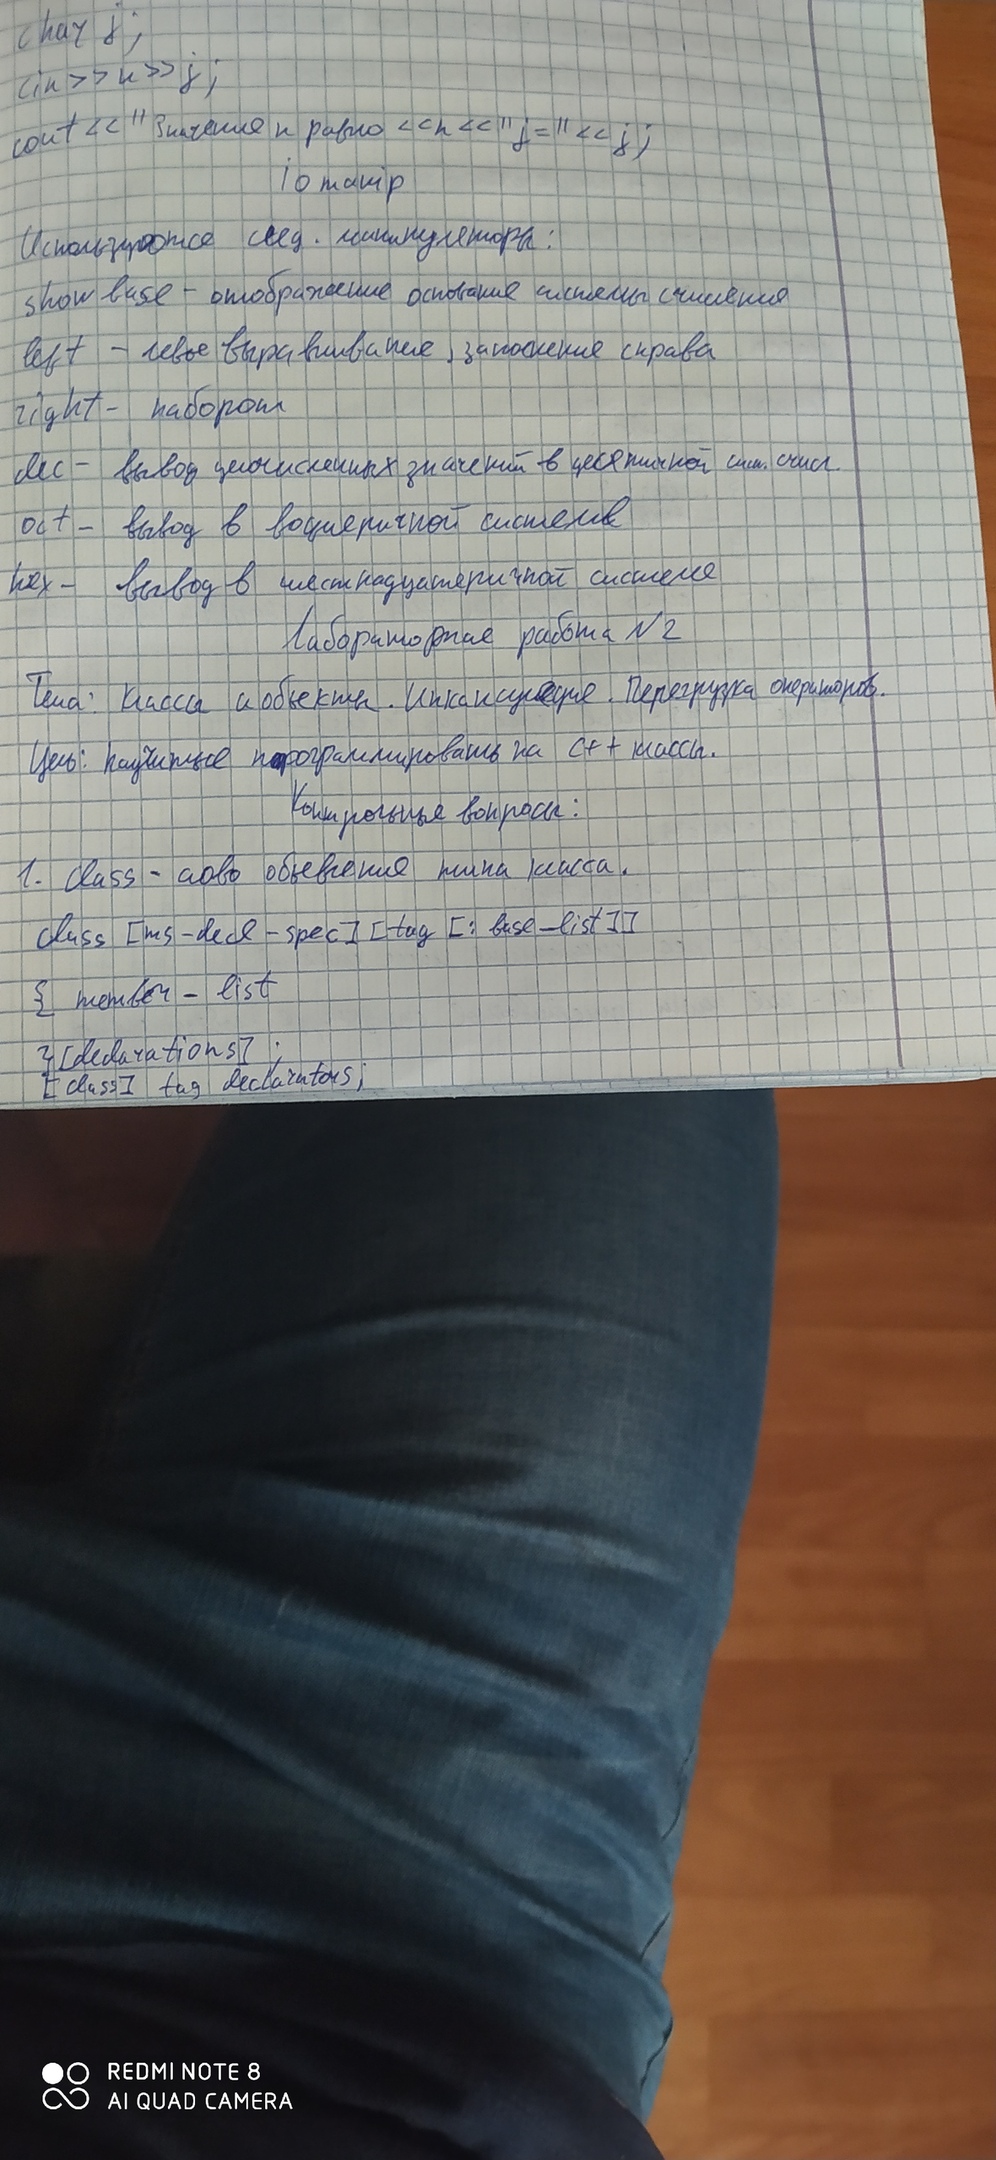 char j;
cin>>n>>j;
cout<<"Значение n равно <<n<<"j="<<j;
iomanip
Используются след. манипуляторы:
showbase - отображение основание системы счисления
left - левое выравнивание, заполнение справа
right - наборот
dec - вывод целочисленных значений в десятичной сист. счисл.
oct - вывод в восмеричной системе
hex - вывод в шестнадцатеричной системе
Лабораторная работа №2
Тема: Классы и объекты. Инкапсуляция. Перегрузка операторов.
Цель: научиться программировать на C++ классы.
Контрольные вопросы:
1. class - слово объевления типа класса.
class [ms-decl-spec] [tag [: base-list]]
{ member-list
}[declarations];
[class] tag declarators;
REDMI NOTE 8
AI QUAD CAMERA